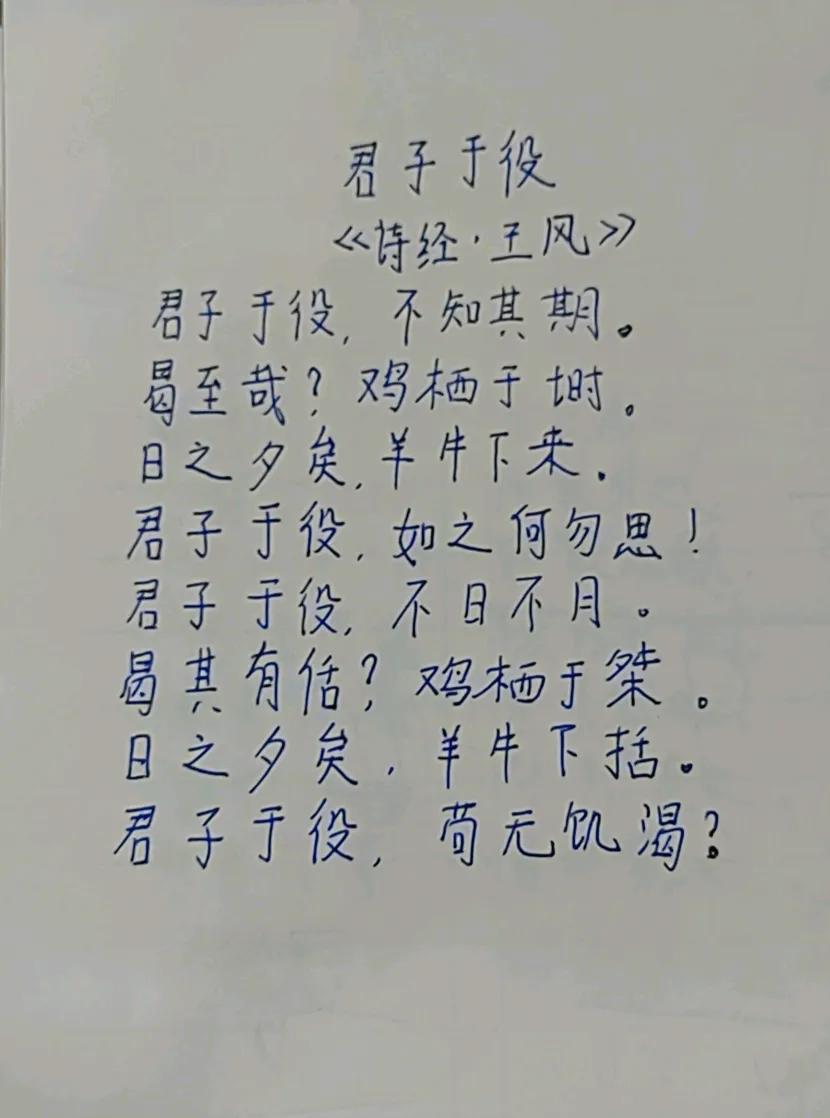 君子于役
《诗经·王风》
君子于役,不知其期。
曷至哉?鸡栖于埘。
日之夕矣,羊牛下来.
君子于役,如之何勿思!
君子于役,不日不月。
曷其有佸?鸡栖于桀。
日之夕矣,羊牛下括。
君子于役,苟无饥渴?